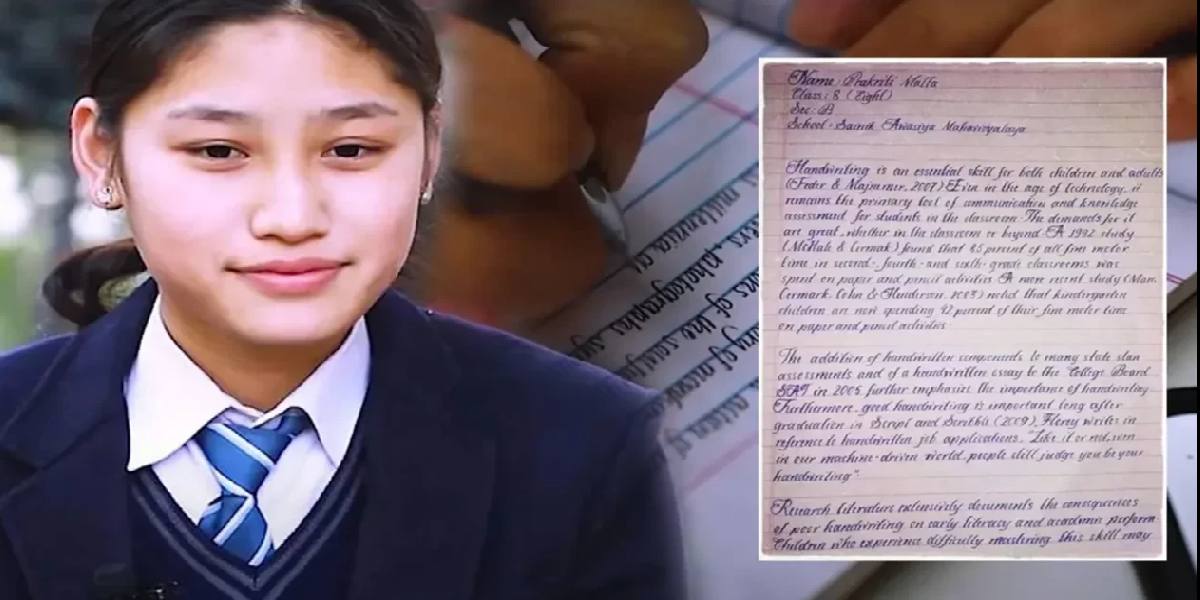 Name : Prakriti Malla
Class : 8 (Eight)
Sec : B
School - Sainik Awasiya Mahavidyalaya
Handwriting is an essential skill for both children and adults
(Feder & Majnemer, 2007) Even in the age of technology, it
remains the primary tool of communication and knowledge
assessment for students in the classroom. The demands for it
are great, whether in the classroom or beyond. A 1992 study
(McHale & Cermak) found that 85 percent of all fine motor
time in second-, fourth- and sixth-grade classrooms was
spent on paper and pencil activities. A more recent study (Marr,
Cermark, Cohn & Henderson, 2003) noted that kindergarten
children are now spending 42 percent of their fine motor time
on paper and pencil activities
The addition of handwritten components to many state stan
assessments and of a handwritten essay to the "College Board
SAT in 2005 further emphasize the importance of handwriting
Furthurmore, good handwriting is important long after
graduation in Script and Scribble (2009), Florey writes in
reference to handwritten job applications, "Like it or not, even
in our machine-driven world, people still judge you by your
handwriting".
Research literature extensively documents the consequences
of poor handwriting on early literacy and academic perform
Children who experience difficulty mastering this skill may
millennia a
photographs
of the